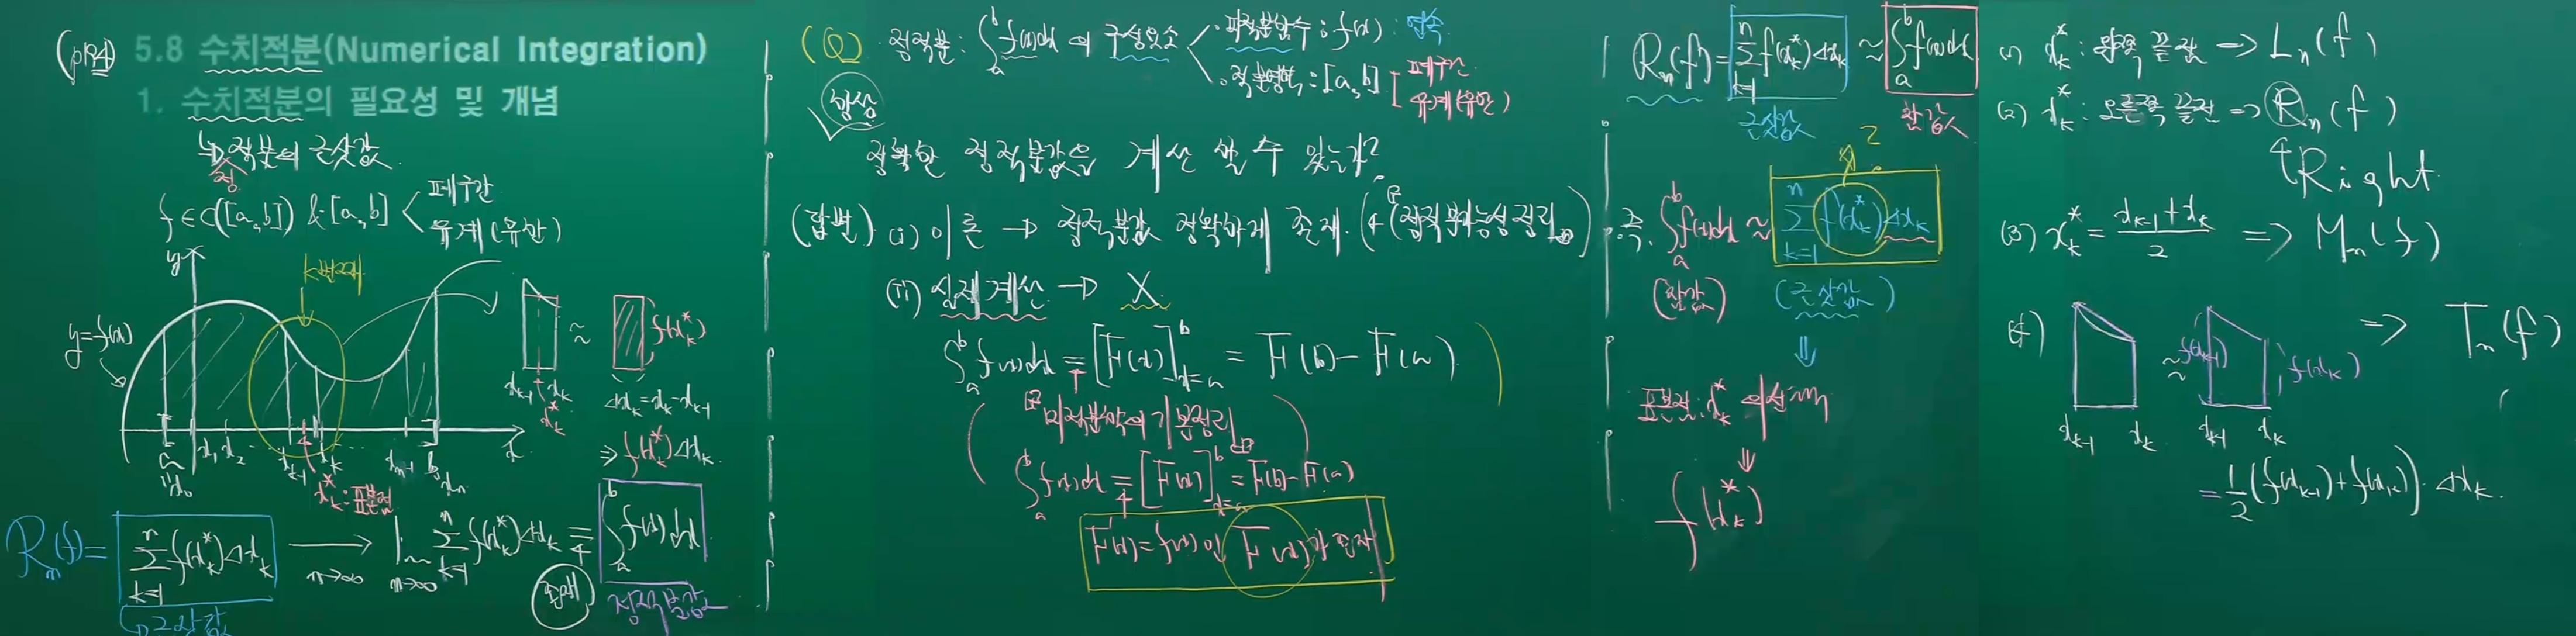 (p184) 5.8 수치적분(Numerical Integration)
1. 수치적분의 필요성 및 개념
↳ 정적분의 근삿값
f∈C([a,b]) & [a,b] < 폐구간
유계(유한)
k번째
y
y=f(x)
a x₁ x₂ … x_{k-1} x_k … x_{n-1} b x
x₀ x_n
x_k* : 표본점
≈ f(x_k*)
x_{k-1} x_k
x_k*
Δx_k = x_k - x_{k-1}
⇒ f(x_k*)Δx_k
R_n(f) = Σ_{k=1}^{n} f(x_k*)Δx_k → (n→∞) lim_{n→∞} Σ_{k=1}^{n} f(x_k*)Δx_k = ∫_a^b f(x)dx
근삿값 존재 정적분값
(Q) 정적분 : ∫_a^b f(x)dx 의 구성요소 < · 피적분함수 : f(x) : 연속
· 적분영역 : [a,b] [ 폐구간
유계(유한)
항상
정확한 정적분값을 계산 할 수 있는가?
(답변) (i) 이론 → 정적분값 정확하게 존재. (정적분가능성정리)
(ii) 실제계산 → X
∫_a^b f(x)dx = [F(x)]_{x=a}^{b} = F(b) - F(a)
미적분학의 기본정리
∫_a^b f(x)dx = [F(x)]_{x=a}^{b} = F(b) - F(a)
F'(x) = f(x) 인 F(x)가 존재
R_n(f) = Σ_{k=1}^{n} f(x_k*)Δx_k ≈ ∫_a^b f(x)dx
근삿값 참값
?
즉, ∫_a^b f(x)dx ≈ Σ_{k=1}^{n} f(x_k*)Δx_k
(참값) (근삿값)
⇓
표본점 : x_k* 의 선택
⇓
f(x_k*)
(1) x_k* : 왼쪽 끝점 ⇒ L_n(f)
(2) x_k* : 오른쪽 끝점 ⇒ R_n(f)
Right
(3) x_k* = (x_{k-1}+x_k)/2 ⇒ M_n(f)
(4) ≈ f(x_{k-1}) f(x_k) ⇒ T_n(f)
x_{k-1} x_k x_{k-1} x_k
= 1/2 (f(x_{k-1})+f(x_k))·Δx_k.